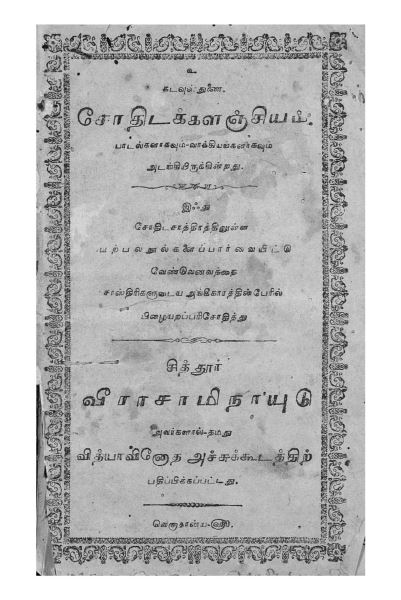 உ
கடவுள் துணை.
சோதிடக்களஞ்சியம்.
பாடல்களாகவும்-வாக்கியங்களாகவும்
அடங்கியிருக்கின்றது.
இஃது
சோதிடசாத்திரத்திலுள்ள
பற்பலநூல்களைப்பார்வையிட்டு
வேண்டுவனவற்றை
சாஸ்திரிகளுடைய அங்கீகாரத்தின்பேரில்
பிழையறப்பரிசோதித்து
சித்தூர்
வீராசாமிநாயுடு
அவர்களால்-தமது
வித்யாவினோத அச்சுக்கூடத்திற்
பதிப்பிக்கப்பட்டது.